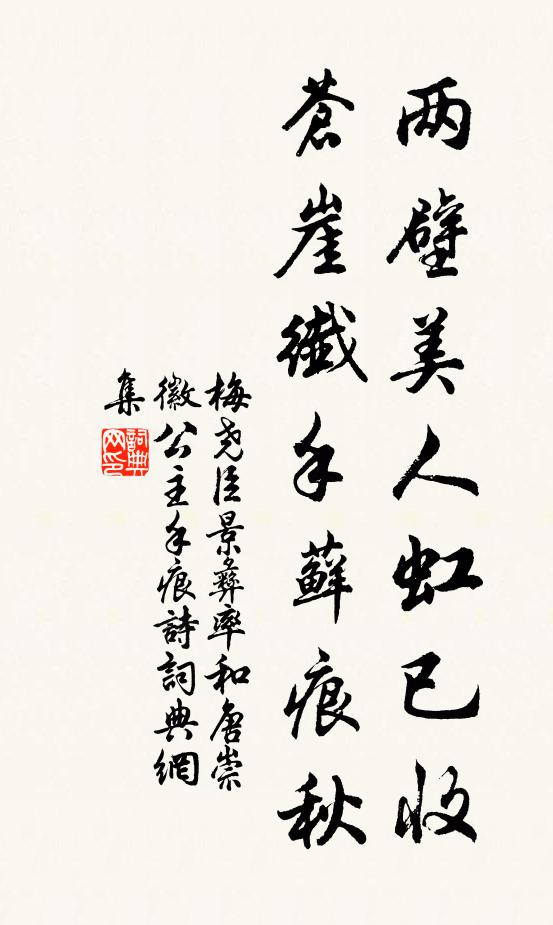 两壁美人虹已收
蒼崖纖手蘚痕秋
梅尧臣景彝率和唐崇
徽公主手痕詩詞典網
集
詞典
网印